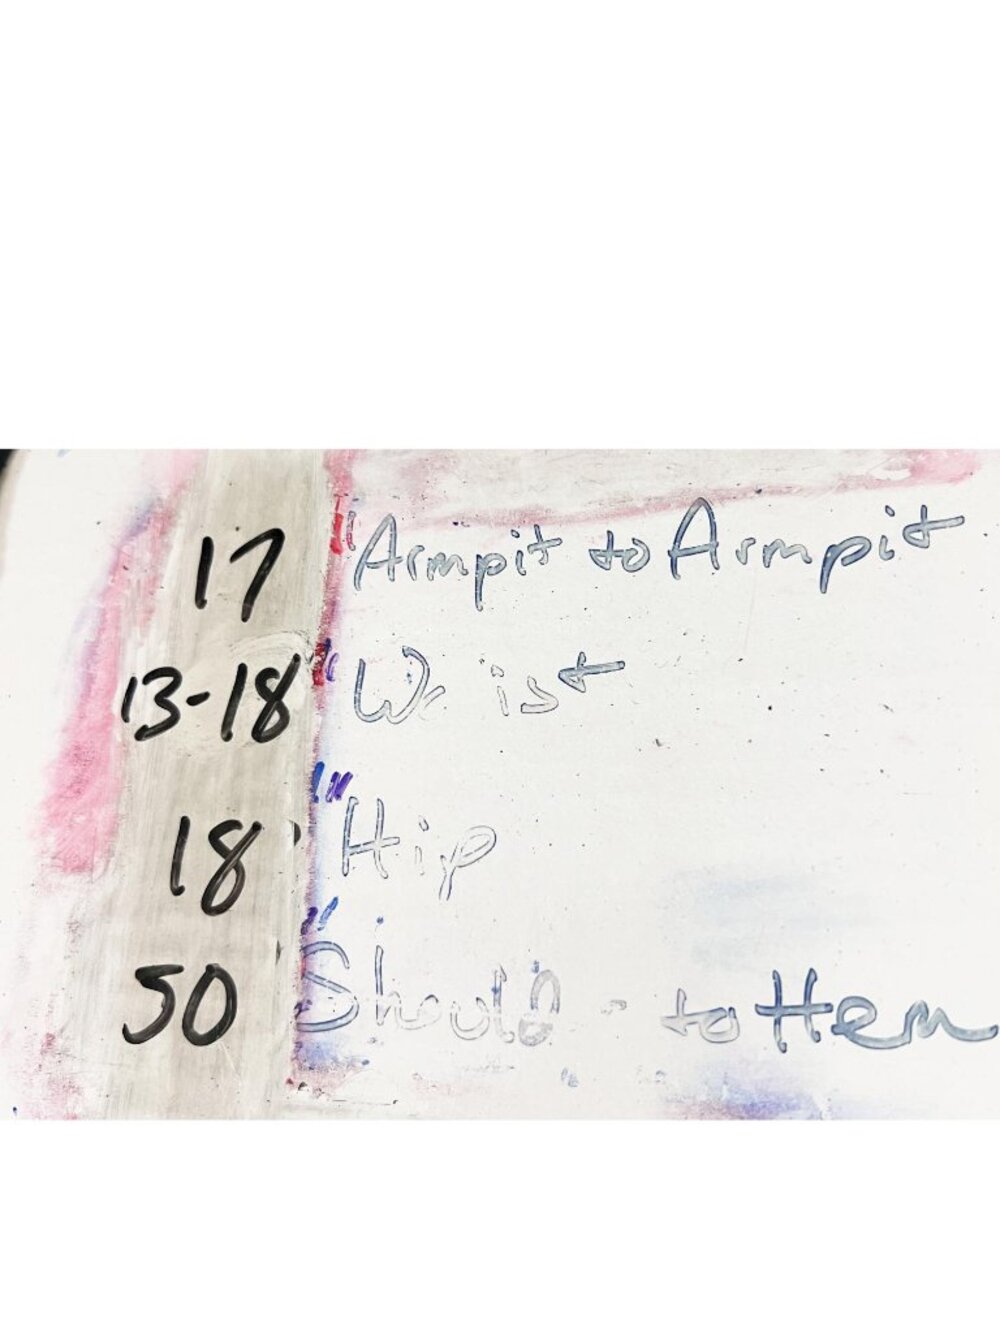 17" Armpit to Armpit
13-18" Waist
18" Hip
50" Should - to Hem